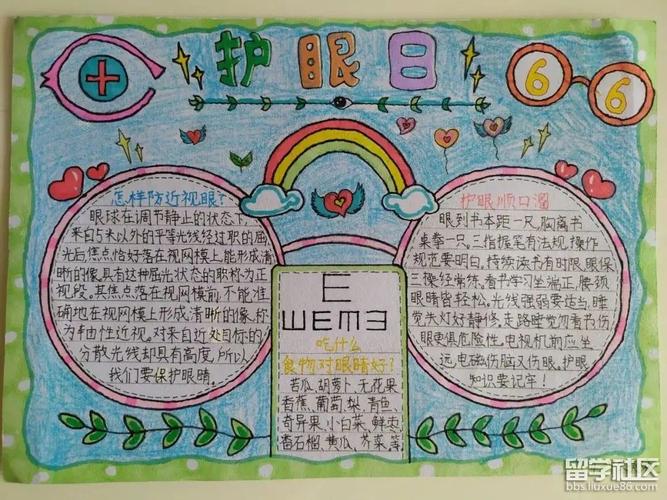 护眼日
6 6
怎样防近视眼?
眼球在调节静止的状态下,
来自5米以外的平等光线经过职的屈
光后焦点恰好落在视网模上,能形成清
晰的像,具有这种屈光状态的职称为正
视段。其焦点落在视网模前,不能准
确地在视网模上形成清晰的像,称
为中由性近视。对来自近处目标的
分散光线却具有高度,所以
我们要保护眼睛。
E
ШEMƎ
吃什么
食物对眼睛好?
苦瓜,胡萝卜,无花果
香蕉,葡萄,梨,青鱼,
奇异果,小白菜,鲜枣
番石榴,黄瓜,芥菜,等
护眼顺口溜
眼到书本距一尺,胸离书
桌拳一尺。三指握笔有法规,操作
规范要明白,持续读书有时限,眼保
三操经常练,看书学习坐端正,腰颈
眼睛皆轻松。光线强弱要适当,睡
觉关灯好静修,走路睡觉勿看书,伤
眼更俱危险性。电视机前应坐
远,电磁伤脑又伤眼。护眼
知识要记牢!
留学社区
bbs.liuxue86.com